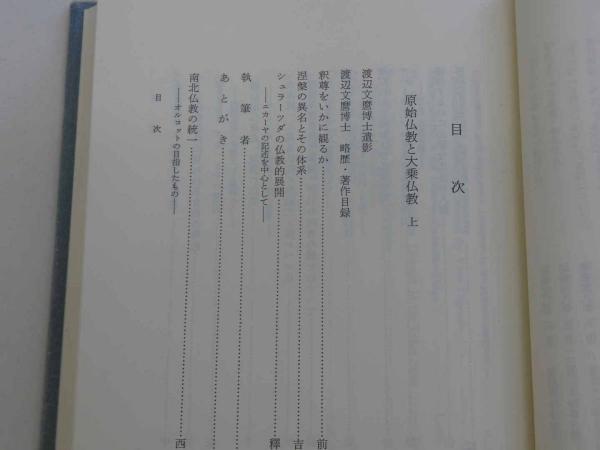 目次
原始仏教と大乗仏教 上
渡辺文麿博士遺影
渡辺文麿博士 略歴・著作目録
釈尊をいかに観るか……前
涅槃の異名とその体系……吉
シュラーッダの仏教的展開……釋
――ニカーヤの記述を中心として――
執筆者……
あとがき……
南北仏教の統一……西
――オルコットの目指したもの――
目次